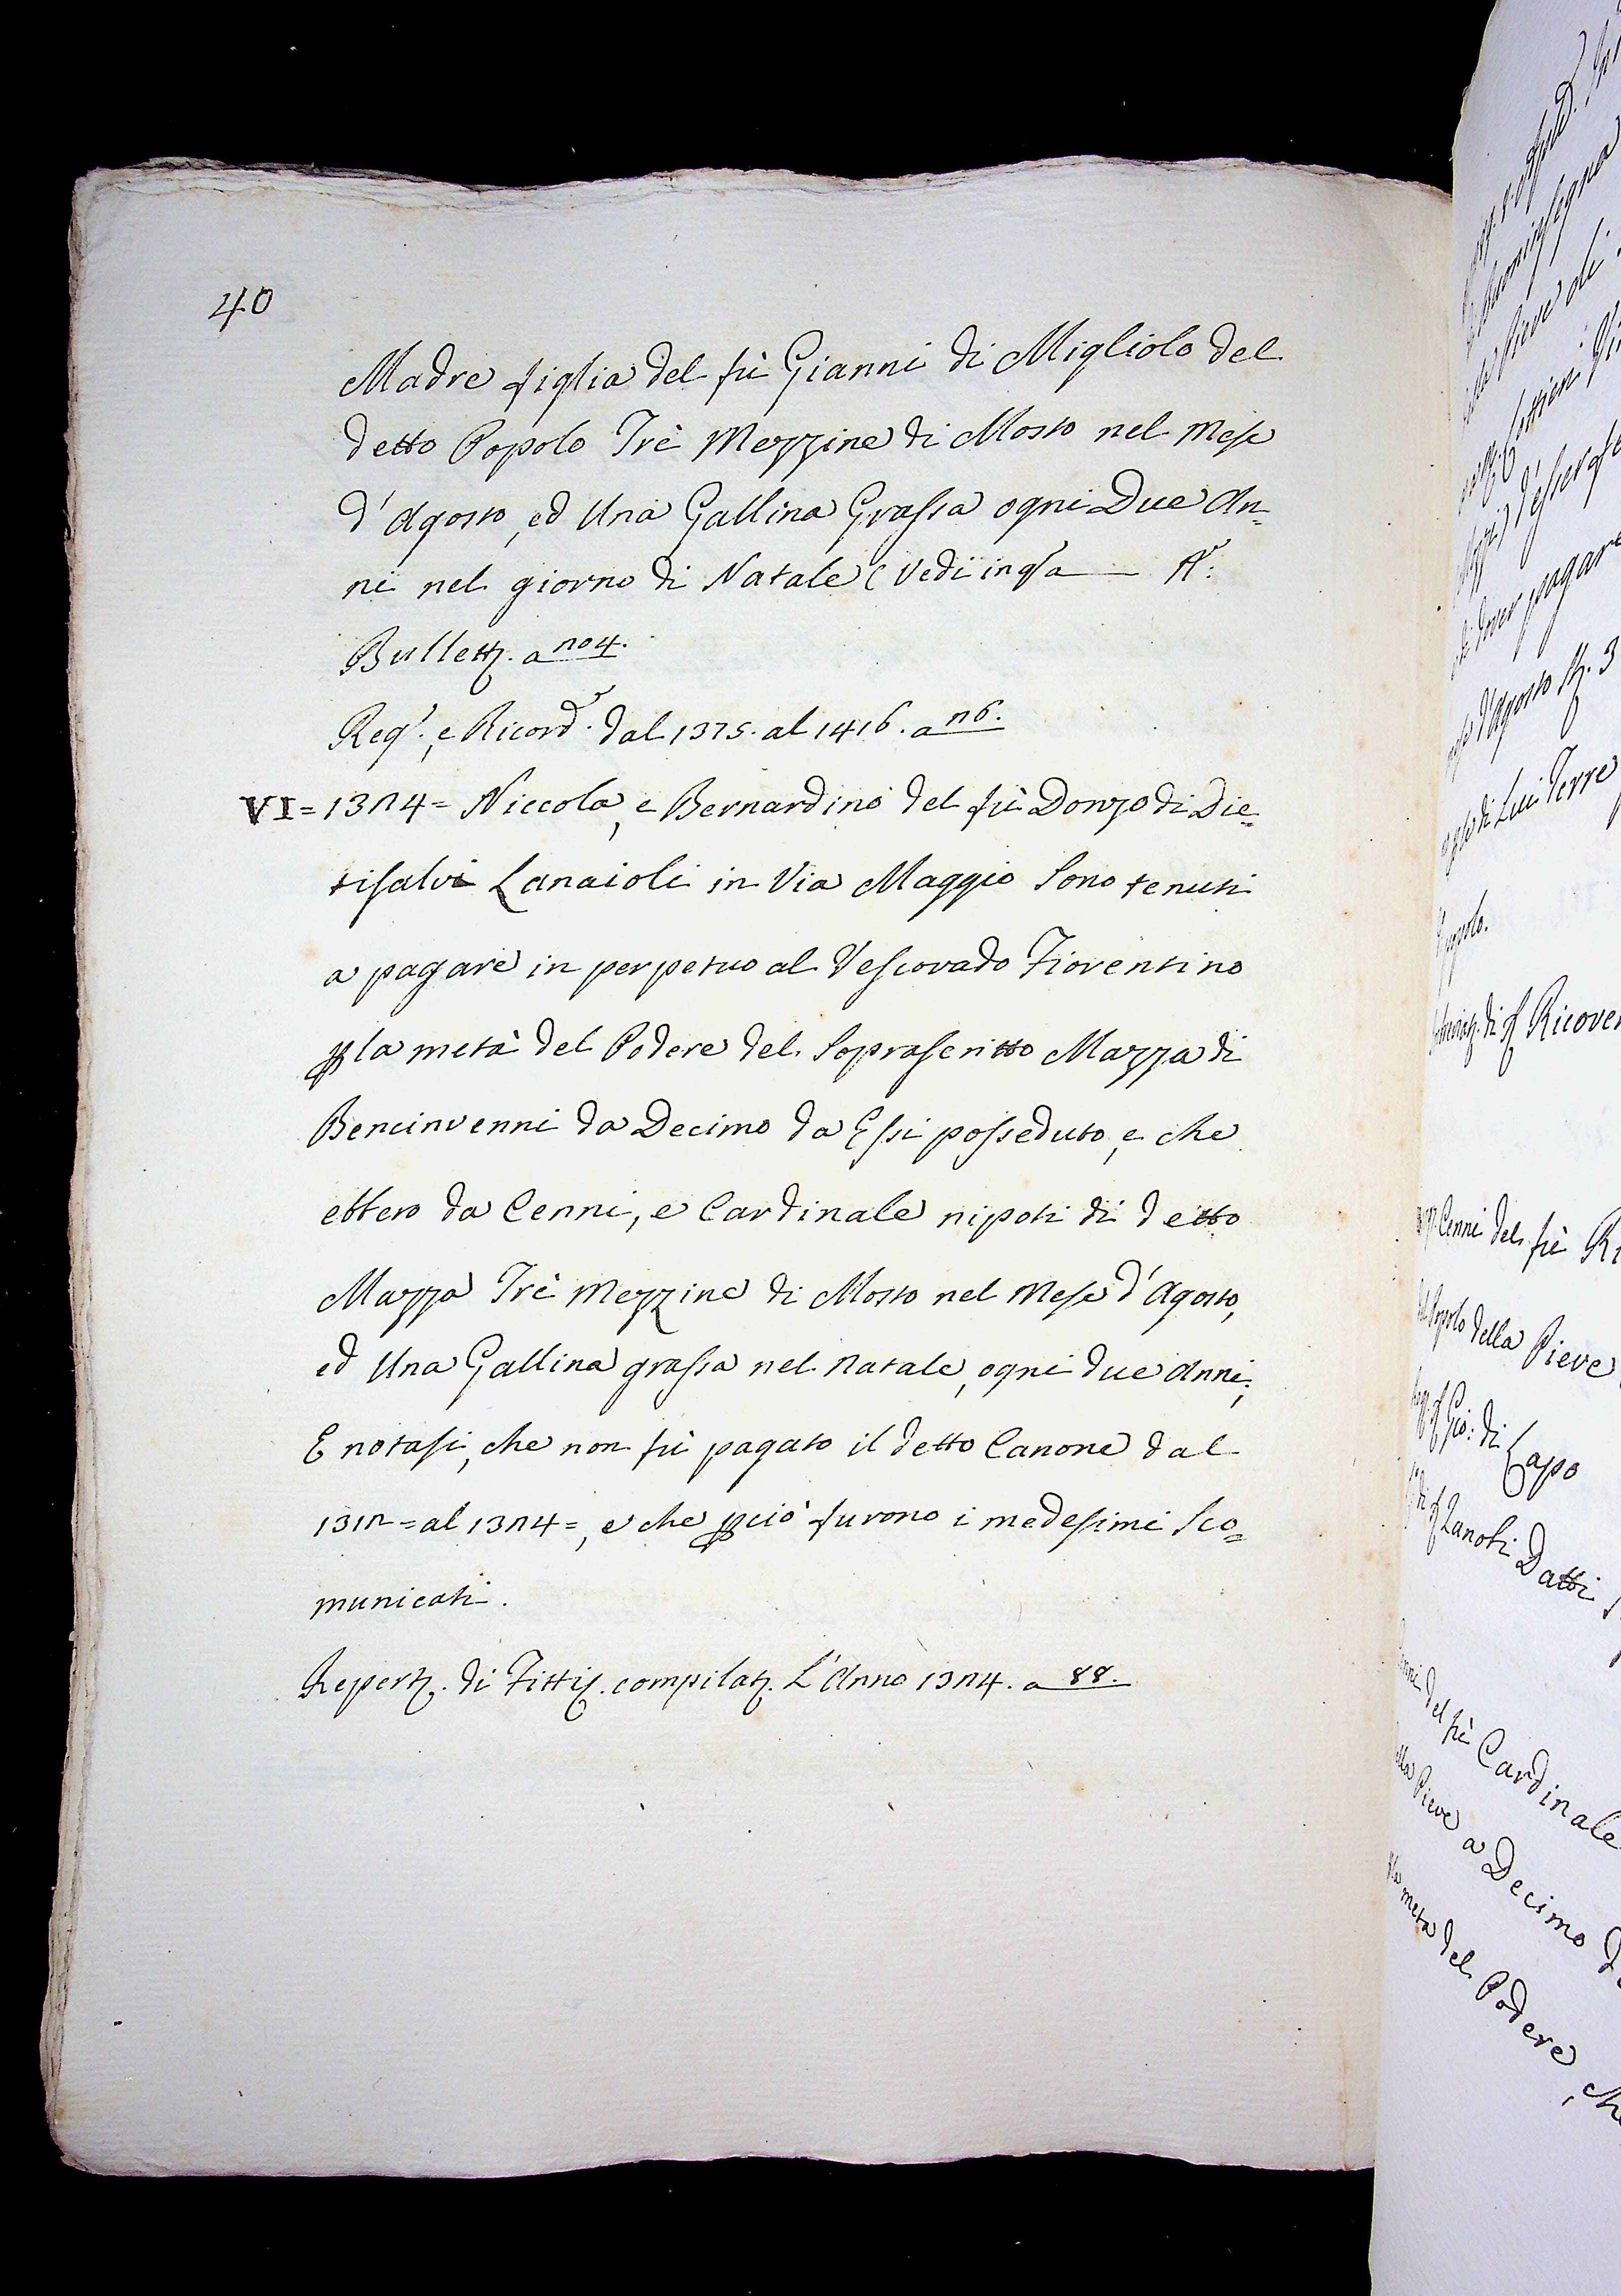 40
Madre figlia del fù Gianni di Migliolo del
detto Popolo Trè Mezzine di Mosto nel Mese
d'Agosto, ed Una Gallina Grassa ogni Due An=
ni nel giorno di Natale (Vedi in qsa — Aº:
Bullettz. a 704.
Regº., e Ricordº. dal 1375. al 1416. a 76.
VI = 1374 = Niccola, e Bernardino del fù Donzo di Die=
tisalvi Lanaioli in Via Maggio Sono tenuti
a pagare in perpetuo al Vescovado Fiorentino
p la metà del Podere del Soprascritto Mazza di
Bencinvenni da Decimo da Essi posseduto, e che
ebbero da Cenni, e Cardinale nipoti di detto
Mazza Trè Mezzine di Mosto nel Mese d'Agosto,
ed Una Gallina grassa nel Natale, ogni due Anni;
E notasi, che non fù pagato il detto Canone dal
1317 = al 1374 =, e che pciò furono i medesimi Sco=
municati.
Repertz. di Fittiz. compilatz. L'Anno 1374. a 88.
Pieve di
dover pagare
d'Agosto
di Lui Terre
Popolo.
Cenni del fù
Popolo della Pieve
Gio: di Lapo
Zanobi Datti
del fù Cardinale
Pieve a Decimo
metà del Podere, che